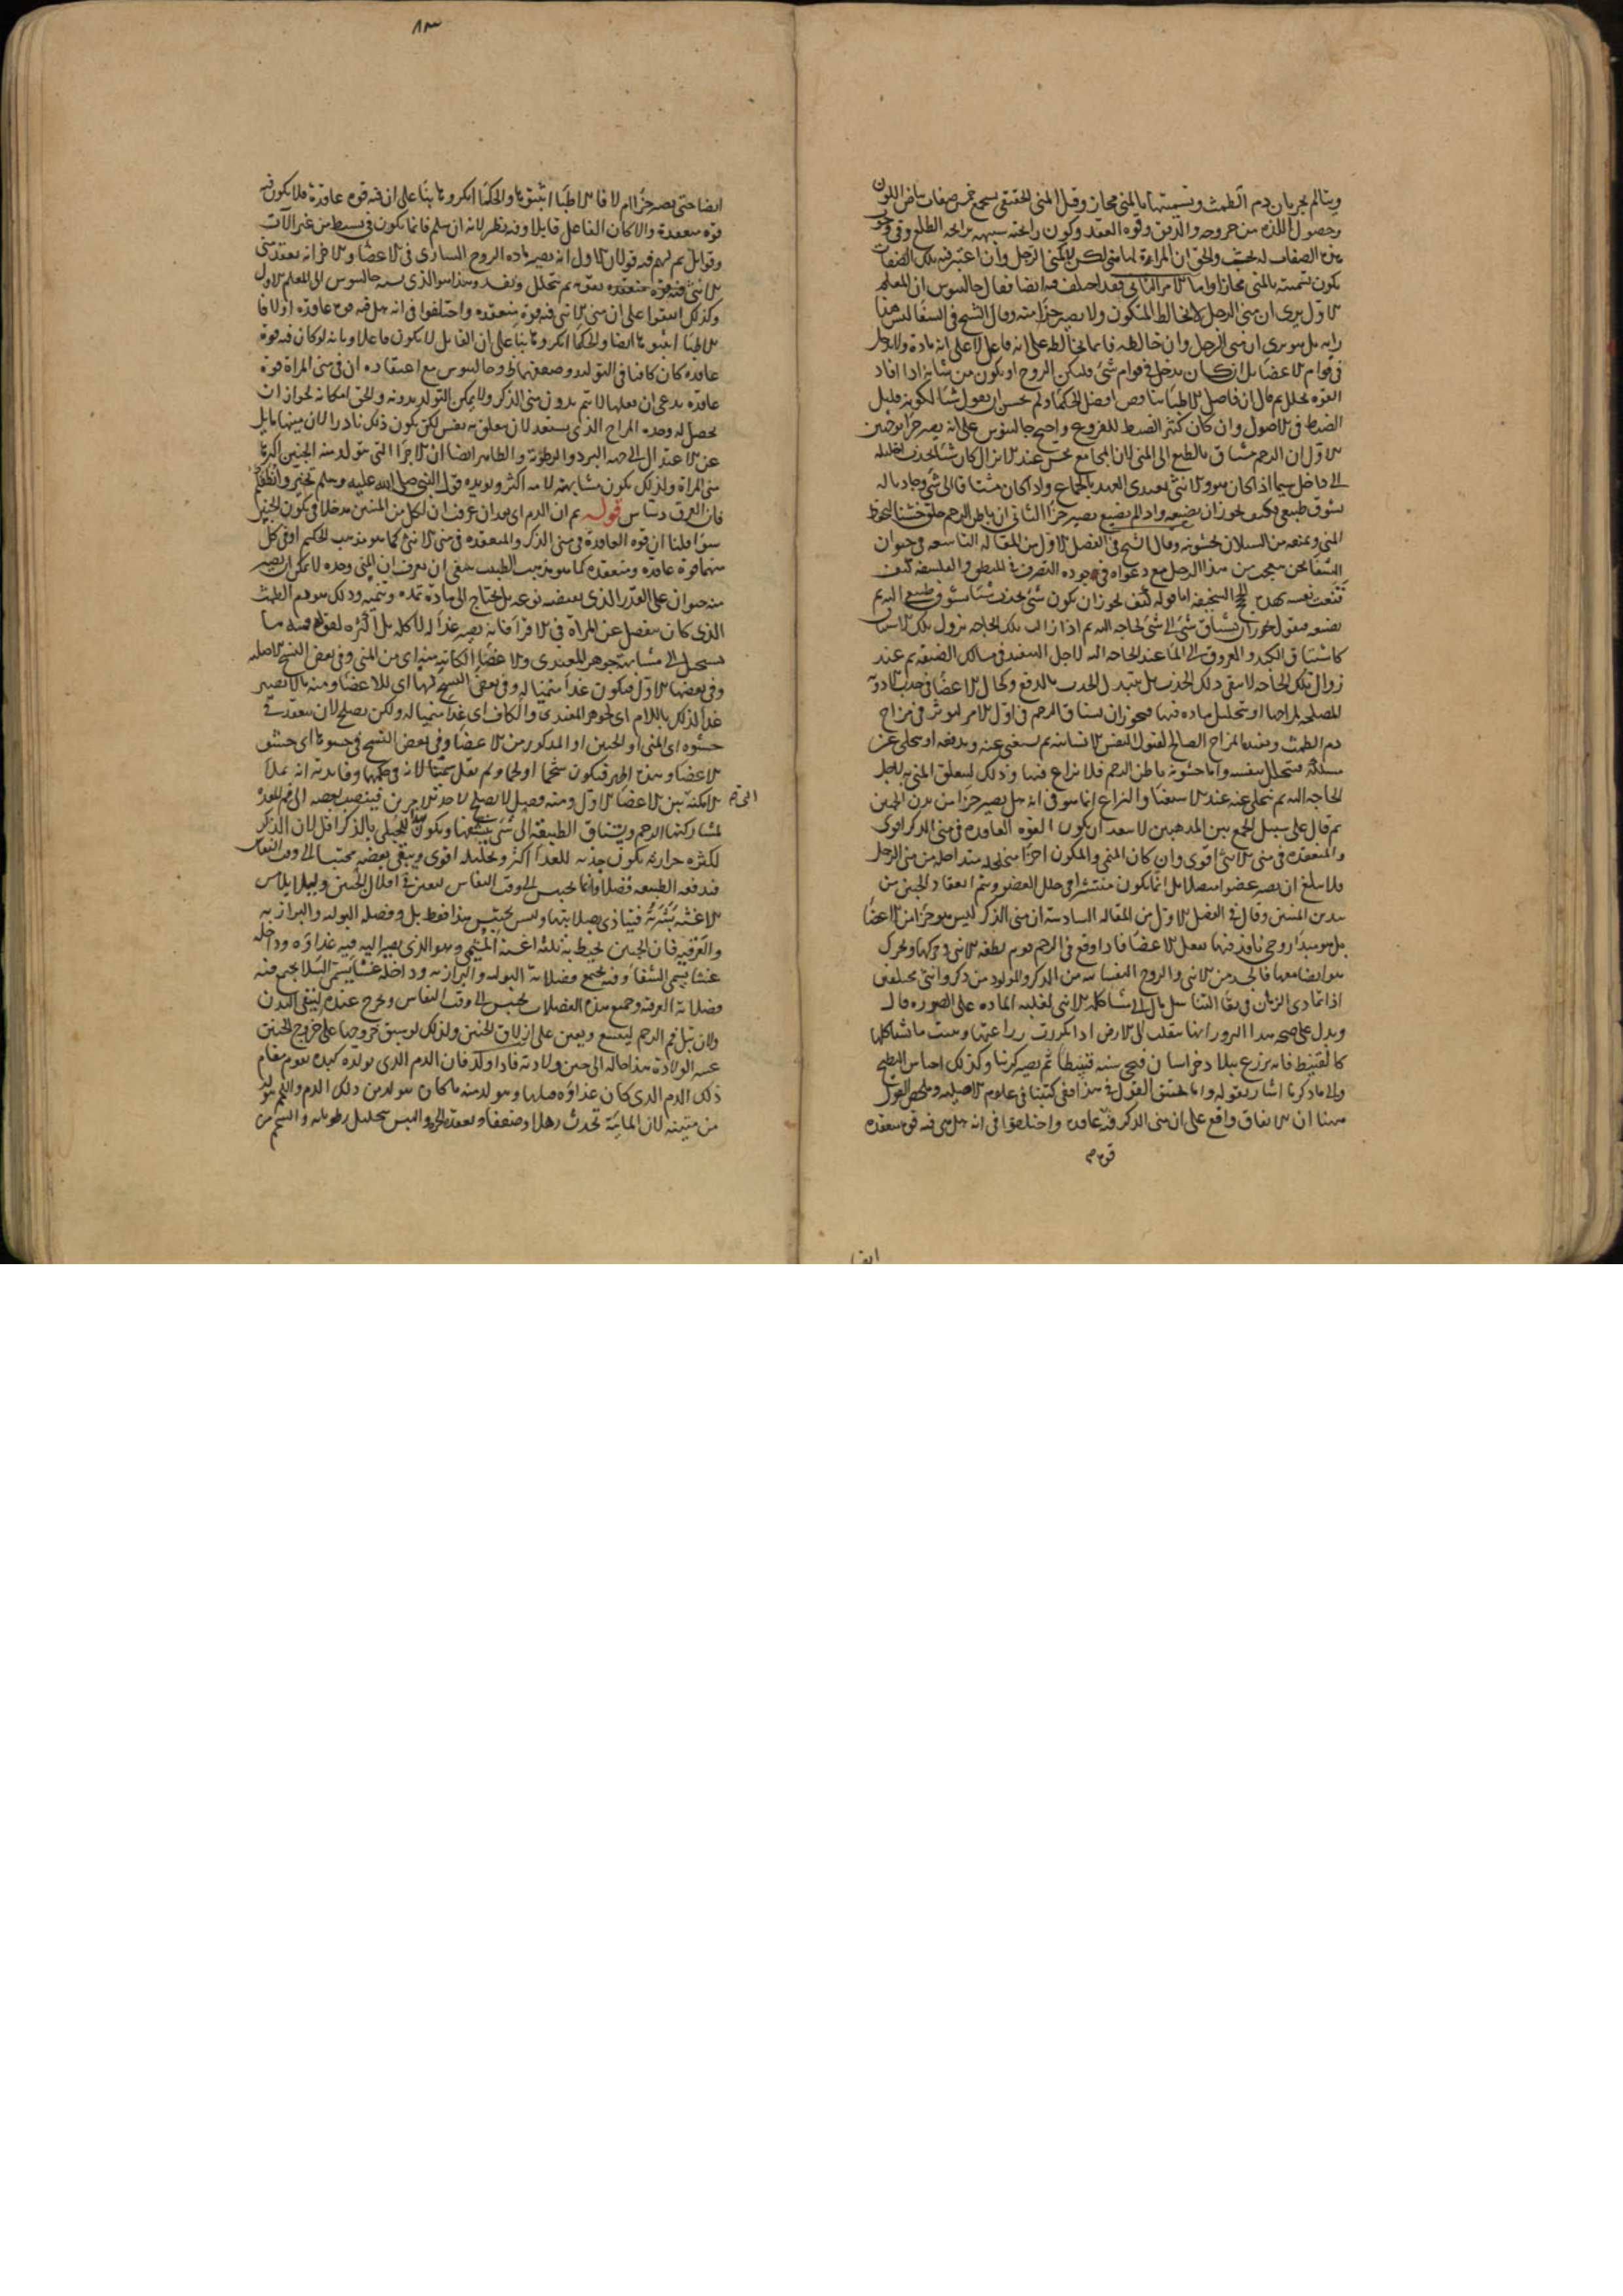 ويقال لم يجر بان دم الطمث وتسميتها بالمني مجاز وقيل المني الحقيقي يجمع خمس صفات بياض اللون
وحصول اللذة من خروجه والدفق وقوة العقد وكون رائحته شبيهة برائحة الطلع وفي وجود
هذه الصفات والحق ان المراءة لها مني لكن لا كمني الرجل وان اعتبر فيه تلك الصفات
يكون تسميته بالمني مجازا واما الامر الثاني فقد اختلف فيه ايضا فقال جالينوس ان المعلم
الاول يرى ان مني الرجل لا يخالط المتكون ولا يصير جزا منه وقال الشيخ في الشفا ليس هذا
رايه بل هو يرى ان مني الرجل وان خالطه فانما يخالطه على انه فاعل لا على انه مادة ولا يدخل
في قوام الاعضا بل ان كان يدخل في قوام شئ فليكن الروح او يكون من شانه اذا افاد
القوة تحلل ثم قال ان فاضل الاطبا ناقض افضل الحكما ولم يحسن ان يقول شيئا لكونه قليل
الضبط في الاصول وان كان كثير الضبط للفروع واحتج جالينوس على انه يصير جزا بوجهين
الاول ان الرحم مشتاق بالطبع الى المني لان المجامع يحس عند الانزال كان شيئا يجذب احليله
الى داخل سيما اذا كان هو والانثى بعيدي العهد بالجماع واذا كان مشتاقا الى شئ وجاذبا له
بشوق طبيعي فكيف يجوز ان يضيعه واذا لم يضيع يصير جزا الثاني ان باطن الرحم خلق خشنا ليحفظ
المني ويمنعه من السيلان لخشونته وقال الشيخ في الفصل الاول من المقالة التاسعة في حيوان
الشفا نحن نتعجب من هذا الرجل مع دعواه في جودة التصرف في المنطق والفلسفة كيف
قنعت نفسه بهذه الحجج السخيفة اما قوله كيف يجوز ان يكون شئ يجذب شيئا بشوق طبيعي اليه ثم
يضيعه فنقول يجوز ان يشتاق شئ الى شئ لحاجة اليه ثم اذا زالت تلك الحاجة يزول تلك الاشتياق
كاشتياق الكبد والعروق الى الماء عند الحاجة اليه لاجل التنفيذ في مسالك الضيقة ثم عند
زوال تلك الحاجة لا يبقى ذلك الجذب بل يتبدل الجذب بالدفع وكحال الاعضا في جذب الادوية
المصلحة لمزاجها او تحليل مادة فيها فيجوز ان يشتاق الرحم في اول الامر ليؤثر في مزاج
دم الطمث ويفيده المزاج الصالح لقبول النفس الانسانية ثم يستغني عنه ويدفعه او يتخلى عن
مسكه فيتحلل بنفسه واما خشونة باطن الرحم فلا نزاع فيها وذلك ليتعلق المني به لاجل
الحاجة اليه ثم يتخلى عنه عند الاستغنا والنزاع انما هو في انه هل يصير جزا من بدن الجنين
ثم قال على سبيل الجمع بين المذهبين لا يبعد ان يكون القوة العاقدة في مني الذكر اقوى
والمنعقدة في مني الانثى اقوى وان كان المني والمكون اجزا متحللة متداخلة من مني الرجل
فلا يبلغ ان يصير عضوا متصلا بل انما يكون منتشرا في خلل العضو ويتم انعقاد الجنين من
هذين المنيين وقال في الفصل الاول من المقالة السادسة ان مني الذكر ليس هو جزا من الاعضا
بل هو مبدا روحي نافذ فيها يفعل الاعضا فاذا وقع في الرحم قوم نطفة الانثى وحركها وتحرك
هو ايضا معها فالجسد من الانثى والروح النفسانية من الذكر والمولود من ذكر وانثى مختلفين
اذا تمادى الزمان في بقا التناسل مال الى مشاكلة الانثى لغلبة المادة على الصورة قال
ويدل على صحة هذا البزور انها ينقلب الى الارض اذا تكررت زراعتها وينبت ما شاكلها
كالقنبيط فانه يزرع ببلاد خراسان فيجئ سنة قنبيطا ثم يصير كرنبا وكذلك اجناس البطيخ
والى ما ذكرنا اشار بقوله واما تحقيق القول في هذا ففي كتبنا في علوم الاصلية وملخص القول
هنا ان الاتفاق واقع على ان مني الذكر فيه عاقدة واختلفوا في انه هل هي فيه قوة منعقدة
قوة م
ايضا
١٨٣
ايضا حتى يصير جزا ام لا فالاطبا اثبتوها والحكما انكروها بنا على ان فيه قوة عاقدة فلا يكون فيه
قوة منعقدة والا كان الفاعل قابلا وفيه نظر لانه ان سلم فانما يكون في بسيط من غير الآت
وقوابل ثم لهم فيه قولان الاول انه يصير مادة الروح الساري في الاعضا والاخر انه يعقد مني
الانثى فيه قوة منعقدة بقوته ثم يتحلل ويفسد وهذا هو الذي نسبه جالينوس الى المعلم الاول
وكذلك اتفقوا على ان مني الانثى فيه قوة منعقدة واختلفوا في انه هل فيه قوة عاقدة او لا فا
لاطبا اثبتوها ايضا والحكما انكروها بنا على ان القابل لا يكون فاعلا وبانه لو كان فيه قوة
عاقدة كان كافيا في التوليد وضعفهما ظ وجالينوس مع اعتقاده ان في مني المراة قوة
عاقدة يدعي ان فعلها لا يتم بدون مني الذكر ولا يمكن التولد بدونه والحق امكانه لجواز ان
يحصل له وحده المزاج الذي يستعد لان يتعلق به نفس لكن يكون ذلك نادرا لان منيها مايل
عن الاعتدال الى جهة البرد والرطوبة والظاهر ايضا ان الاجزا التي يتولد منه الجنين اكثرها
مني المراة ولذلك يكون مشابهته لامه اكثر ويؤيده قول النبي صلى الله عليه وسلم تخيروا لنطفكم
فان العرق دساس قوله ثم ان الدم اي بعد ان عرفت ان لكل من المنيين مدخلا في تكون الجنين
سوا قلنا ان قوة العاقدة في مني الذكر والمنعقدة في مني الانثى كما هو مذهب الحكيم او في كل
منهما قوة عاقدة ومنعقدة كما هو مذهب الطبيب ينبغي ان يعرف ان المني وحده لا يمكن ان يصير
منه حيوان على القدر الذي يقتضيه نوعه بل يحتاج الى مادة تمده وتنميه وذلك هو دم الطمث
الذي كان ينفصل عن المراة في الاقرا فانه يصير غذا له لا كله بل اكثره لقوله فمنه ما
يستحيل الى مشابهة جوهر المغتذي والاعضا الكائنة منه اي من المني وفي بعض النسخ الاصلية
وفي بعضها الاول فيكون غذا منميا له وفي بعض النسخ لها اي للاعضا ومنه ما لا يصير
غذا لذلك باللام اي لجوهر المغتذي وبالكاف اي غذا منميا له ولكن يصلح لان ينعقد في
حشوه اي المني او الجنين او المذكور من الاعضا وفي بعض النسخ في حشوها اي حشو
الاعضا وهذه اظهر فيكون شحما او لحما ولم يقل سمينا لانه في حكمها وفايدته انه يملا
الامكنة بين الاعضا الاول ومنه فضل لا يصلح لاحد الامرين فينصب بعضه الى فم المعدة
لمشاركتها الرحم ويشتاق الطبيعة الى شئ ينشفها ويكون للحبلى بالذكر اقل لان الذكر
لكثرة حرارته يكون جذبه للغذا اكثر وتحليله اقوى ويبقى بعضه محتبسا الى وقت النفاس
فتدفعه الطبيعة فضلا وانما يحبس الى وقت النفاس ليعين في ازلاق الجنين وليلا يلامس
الاغشية بشرته فيتاذى بصلابتها وليس يحتبس هذا فقط بل وفضله البولية والبرازية
والعرقية فان الجنين يحيط به ثلثة اغشية المشيمي وهو الذي يصير اليه فيه غذاوه وداخله
غشا يسمى السقا وفيه يجتمع فضلاته البولية والبرازية وداخله غشا يسمى السلا يجمع فيه
فضلاته العرقية وجميع هذه الفضلات يحتبس الى وقت النفاس ويخرج عنده لينقى البدن
ولان تبل فم الرحم ليتسع ويعين على ازلاق الجنين ولذلك لو سبق خروجها على خروج الجنين
عسر الولادة هذا حاله الى حين ولادته فاذا ولد فان الدم الذي يولده كبده يقوم مقام
ذلك الدم الذي كان غذاوه قبلها ويتولد منه ما كان يتولد من ذلك الدم واللحم يتولد
من متينه لان المائية تحدث رهلا وضعفا ويعقده الحر واليبس بتحليل رطوبته والشحم من